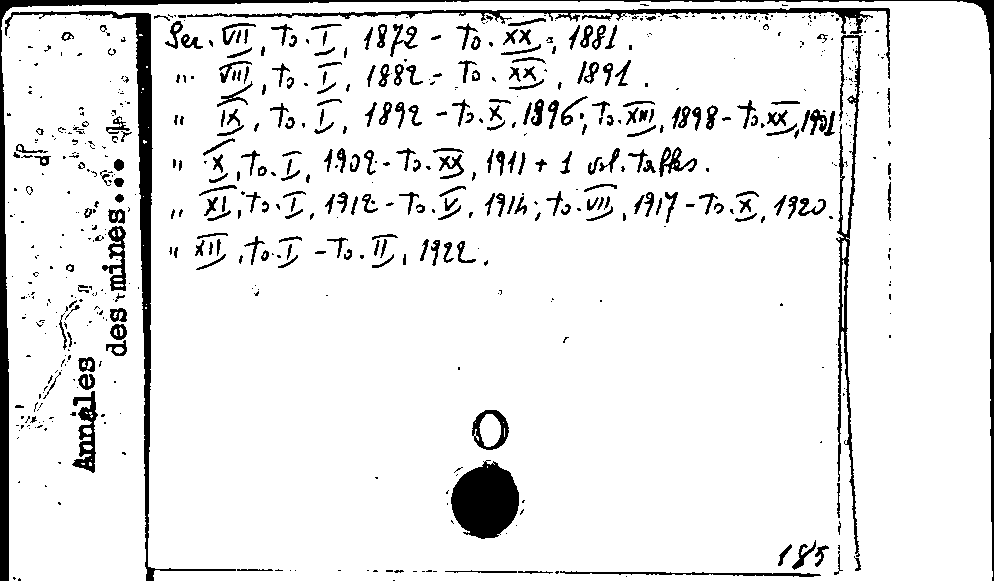 Annales
des mines...
Ser. VII, to. I, 1872 - to. XX, 1881.
" VIII, to. I, 1882 - to. XX, 1891.
" IX, to. I, 1892 - to. X, 1896; to. XIII, 1898 - to. XX, 1901
" X, to. I, 1902 - to. XX, 1911 + 1 vol. tables.
" XI, to. I, 1912 - to. V, 1914; to. VII, 1917 - to. X, 1920.
" XII, to. I - to. II, 1922.
185